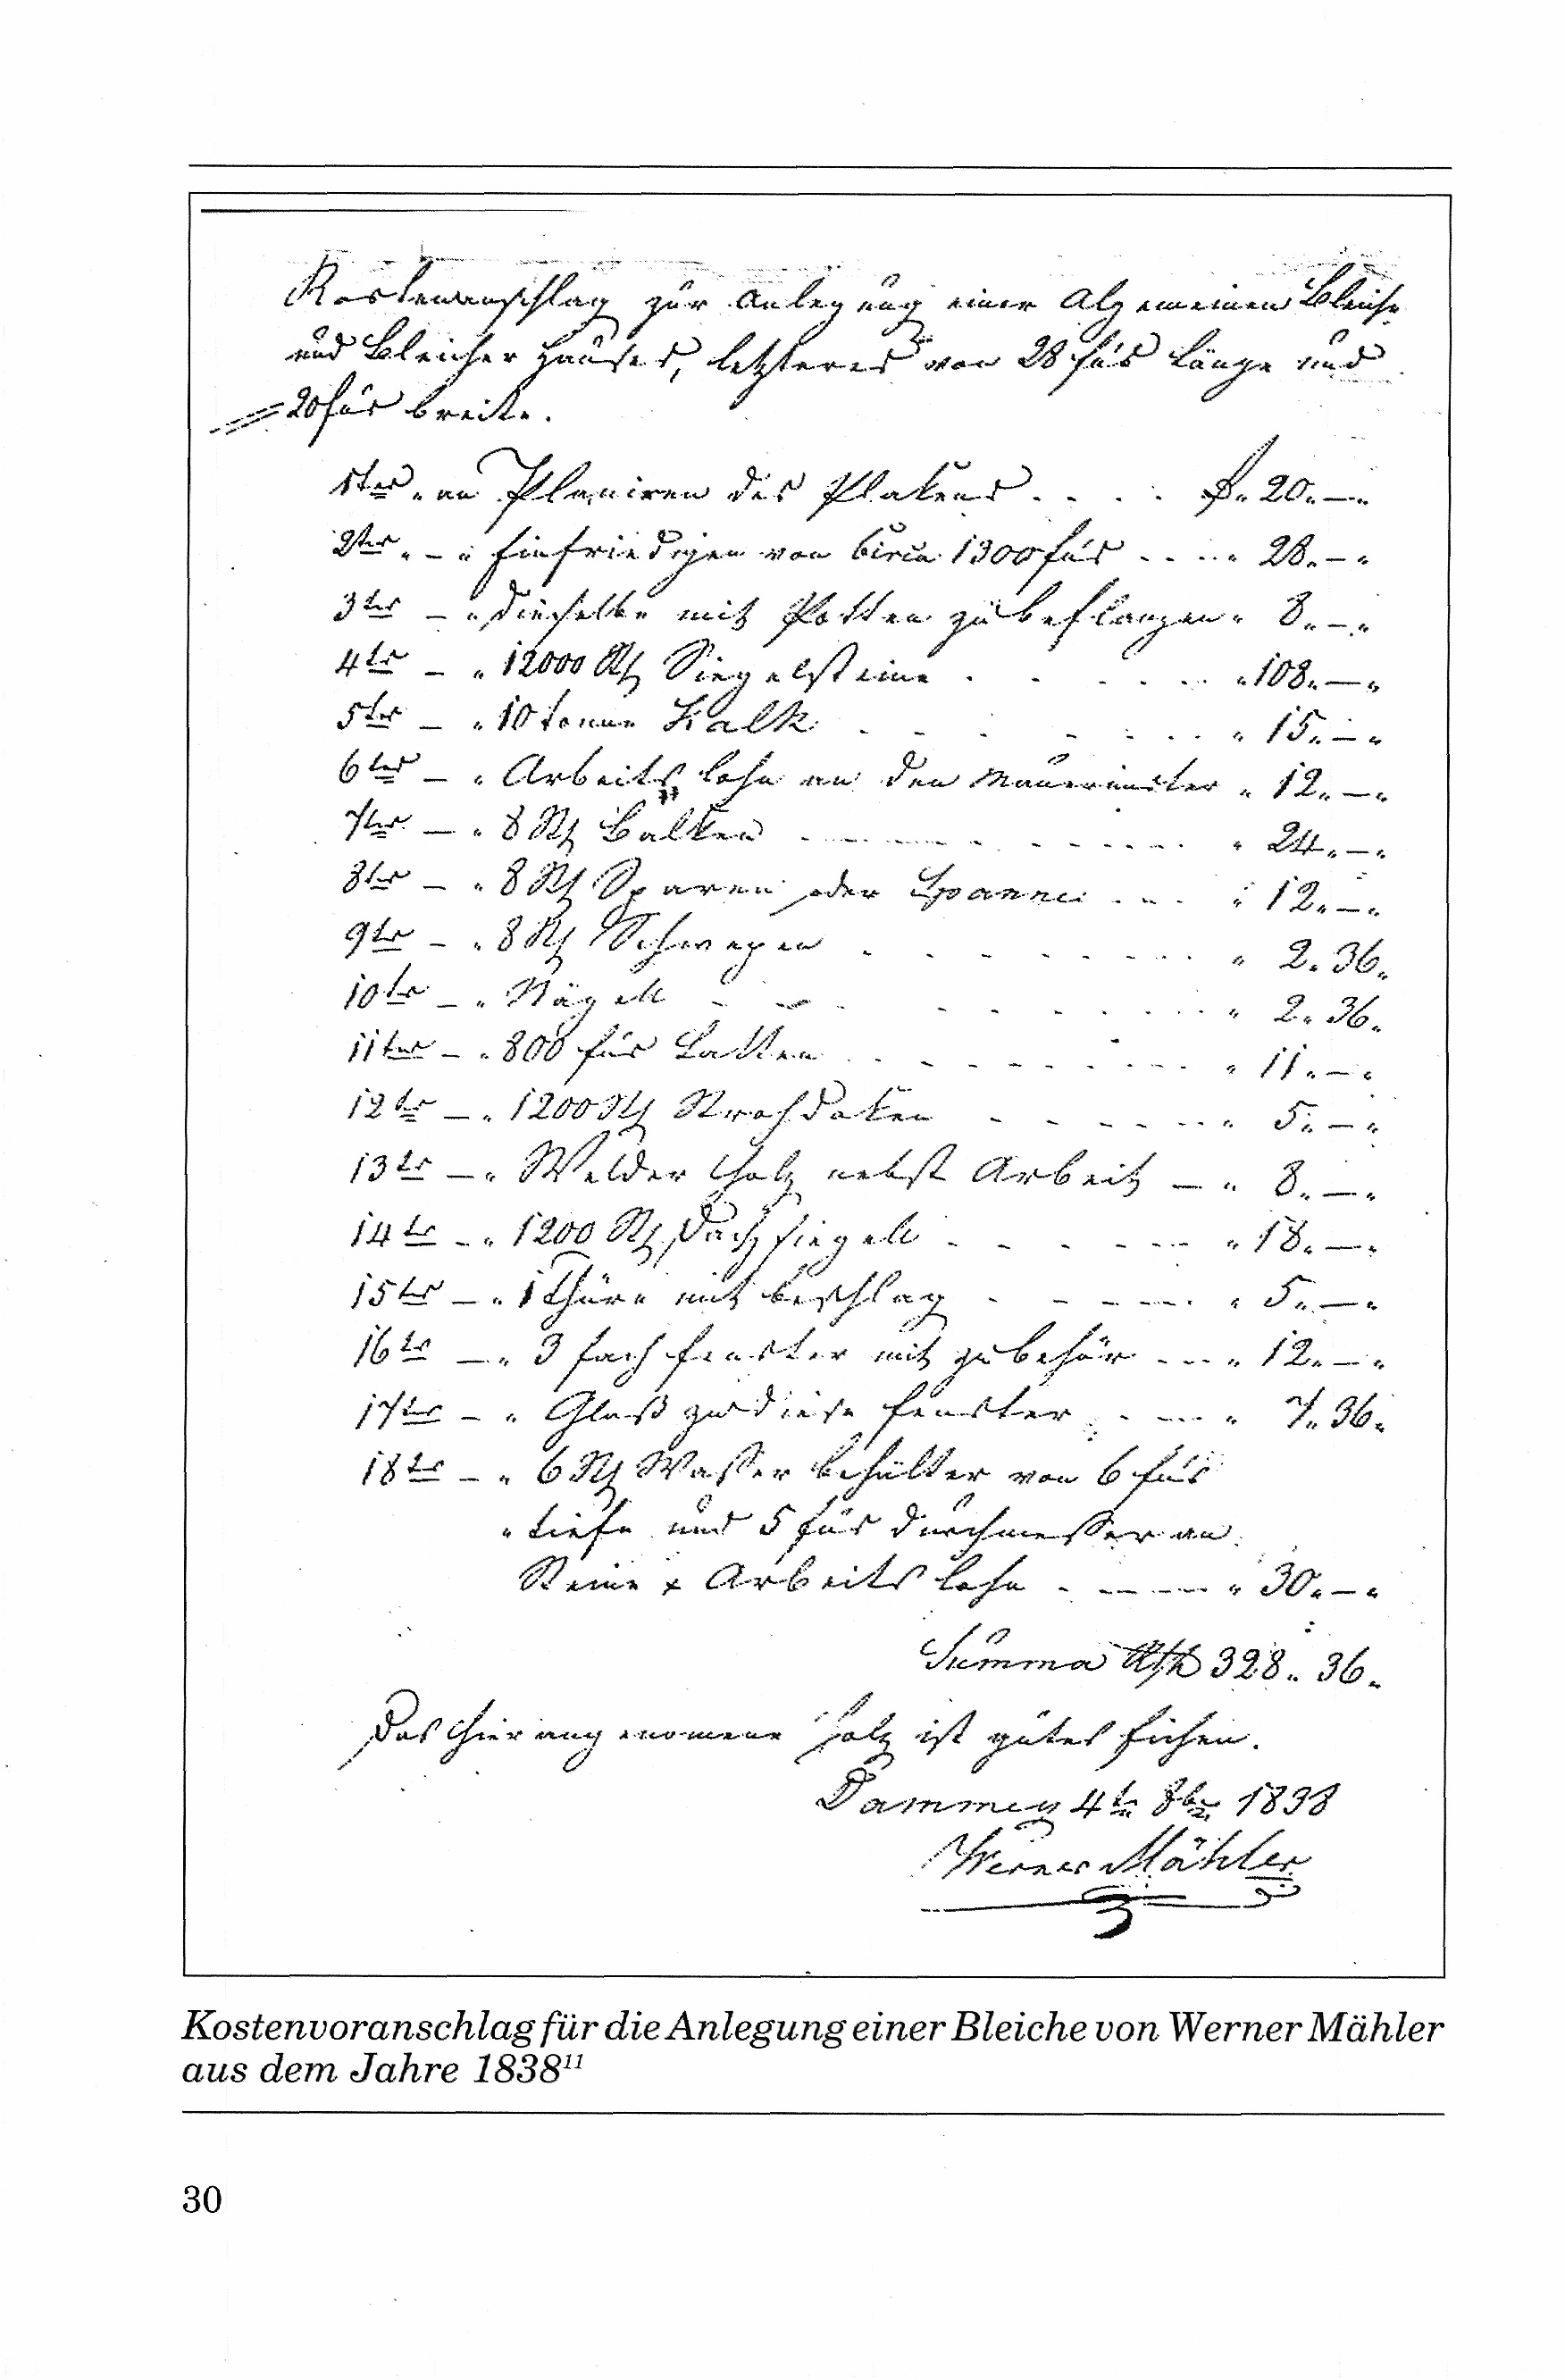 Kostenanschlag zur Anlegung einer Algemeinen Bleiche
und Bleicher Hauses, letzteres von 28 fus Länge und
20 fus breite.
1tes „ an Planiren des Plakens . . . . . 20 „ — „
2tes „ — „ Einfriedigen von Circa 1300 fus . . . . „ 28 „ — „
3tes — „ dieselbe mit Potten zu beflanzen „ 8 „ — „
4tes — „ 12000 St Siegelsteine . . . . . . „ 108 „ — „
5tes — „ 10 tonne Kalk . . . . . . . „ 15 „ — „
6tes — „ Arbeits lohn an den Mauermister „ 12 „ — „
7tes — „ 8 St Balken . . . . . . . „ 24 „ — „
8tes — „ 8 St Sparen oder Spanne . . . „ 12 „ — „
9tes — „ 8 St Schwegen . . . . . . . „ 2 „ 36 „
10tes — „ Nägell . . . . . . . „ 2 „ 36 „
11tes — „ 800 fus Latten . . . . . . . „ 11 „ — „
12tes — „ 1200 St Strohdoken . . . . . . „ 5 „ — „
13tes — „ Welder Holz nebst Arbeit — „ 8 „ — „
14tes — „ 1200 St Dachsiegell . . . . . . „ 18 „ — „
15tes — „ 1 Thüre mit beschlag . . . . . „ 5 „ — „
16tes — „ 3 fach fenster mit zubehör . . . „ 12 „ — „
17tes — „ Glaß zu diese fenster . . . „ 7 „ 36 „
18tes — „ 6 St Wasser behälter von 6 fus
„ tiefe und 5 fus durchmesser an
Steine & Arbeits lohn . . . . „ 30 „ — „
Summa Rth 328 „ 36 „
Das Hier angenomene Holz ist gutes Eichen.
Damme 4te 8br 1838
Werner Mähler
Kostenvoranschlag für die Anlegung einer Bleiche von Werner Mähler
aus dem Jahre 1838¹¹
30